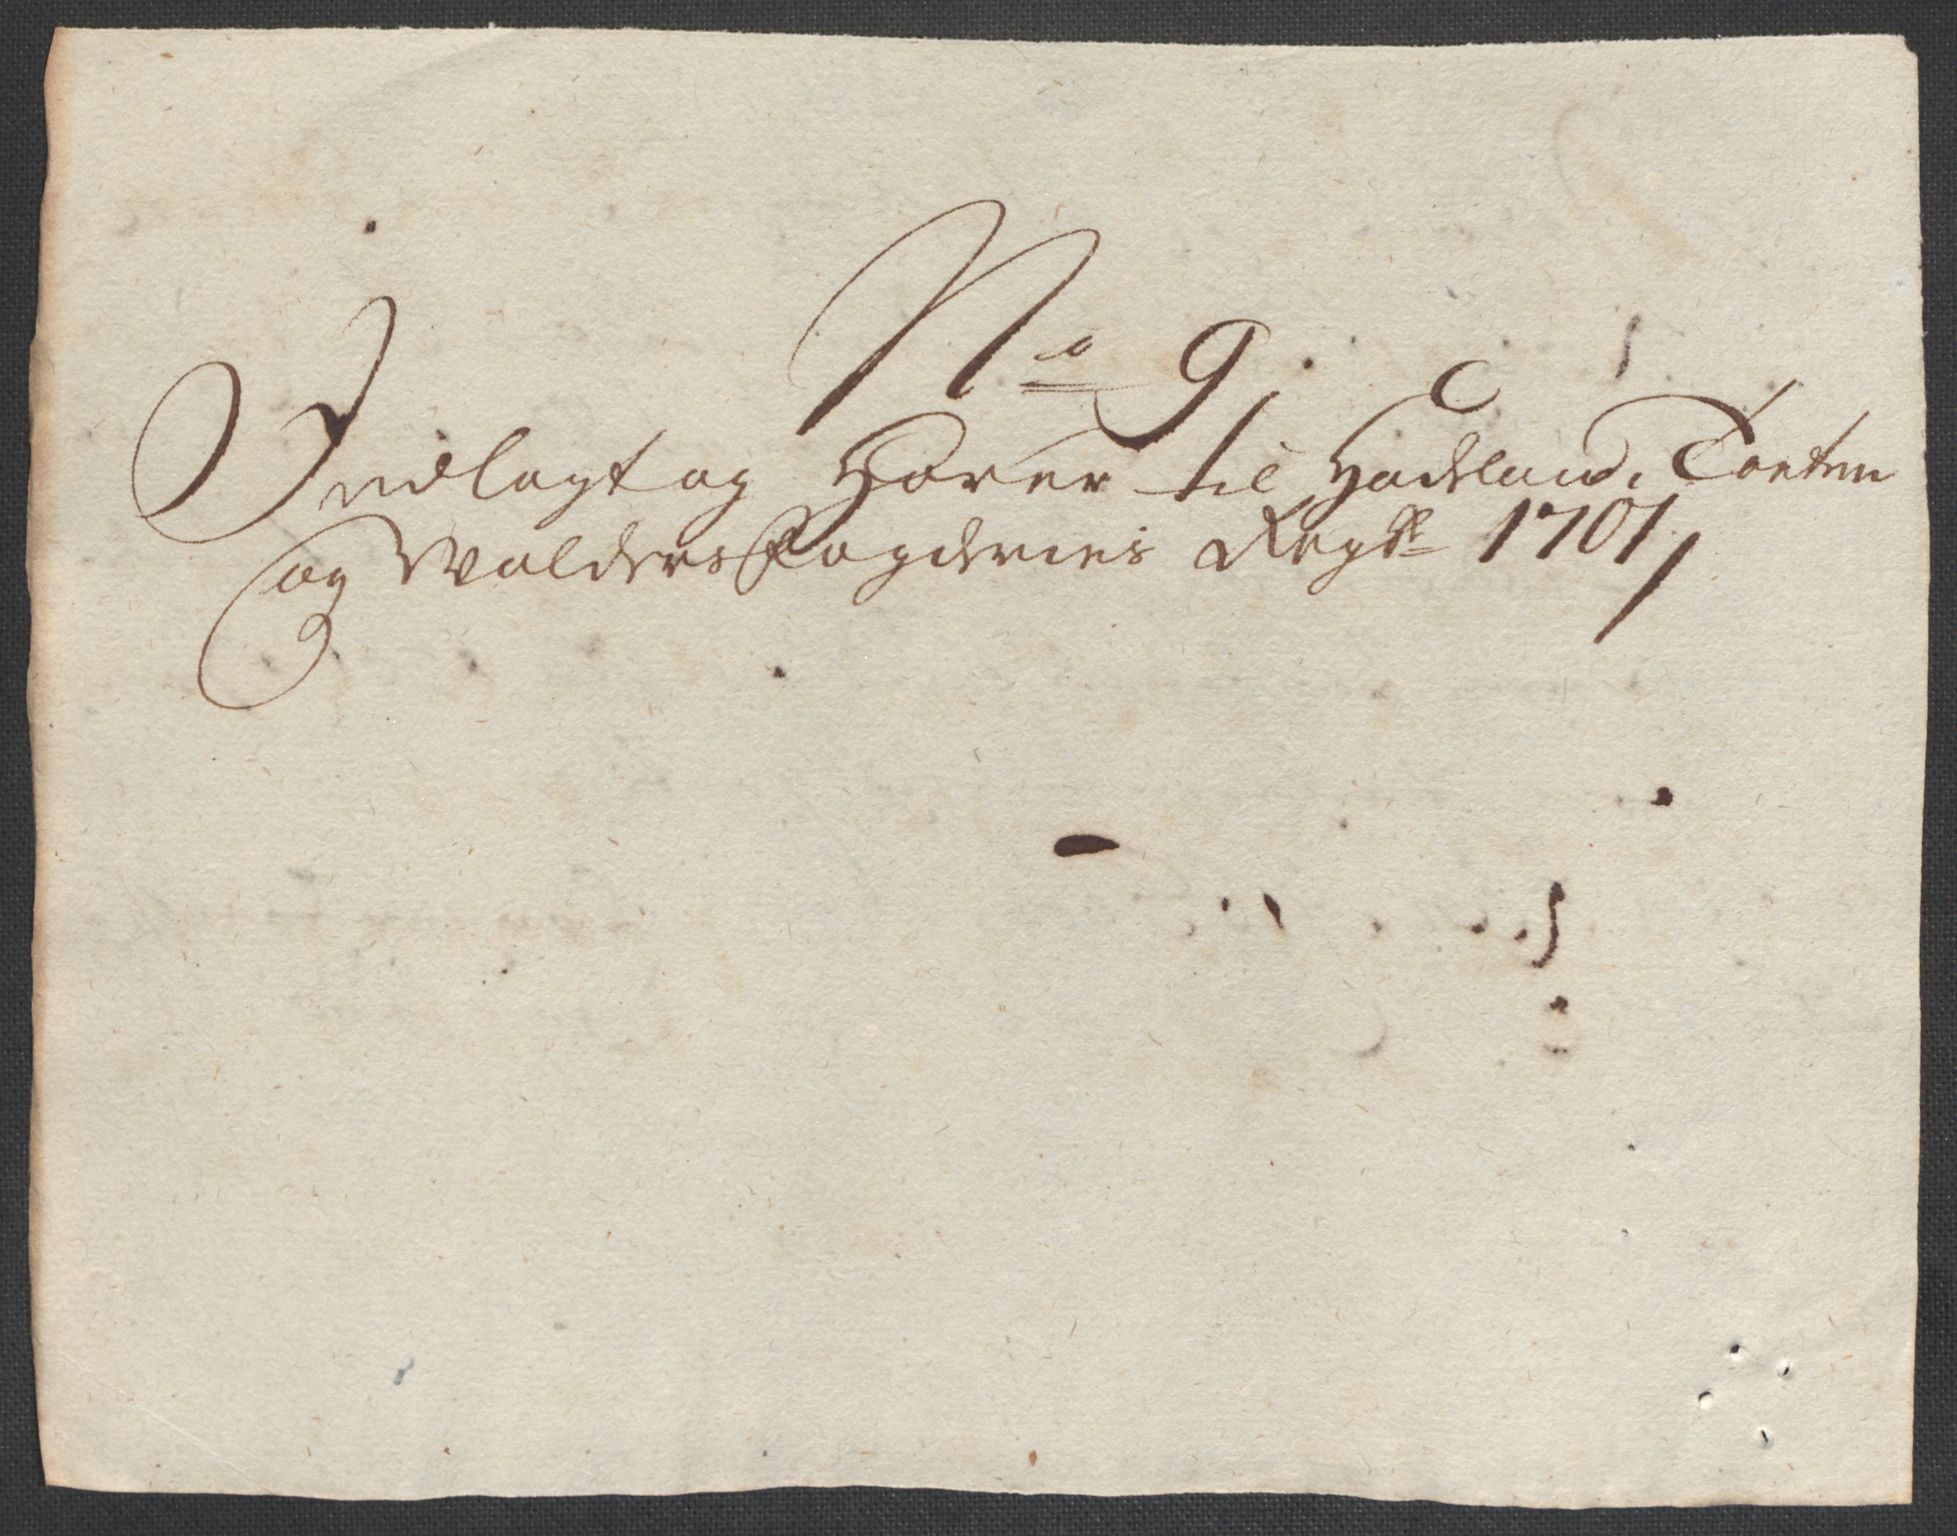 No 9
Indlagt og Hører til Hadeland, Toeten
og Walders Fogderies Regsk 1701